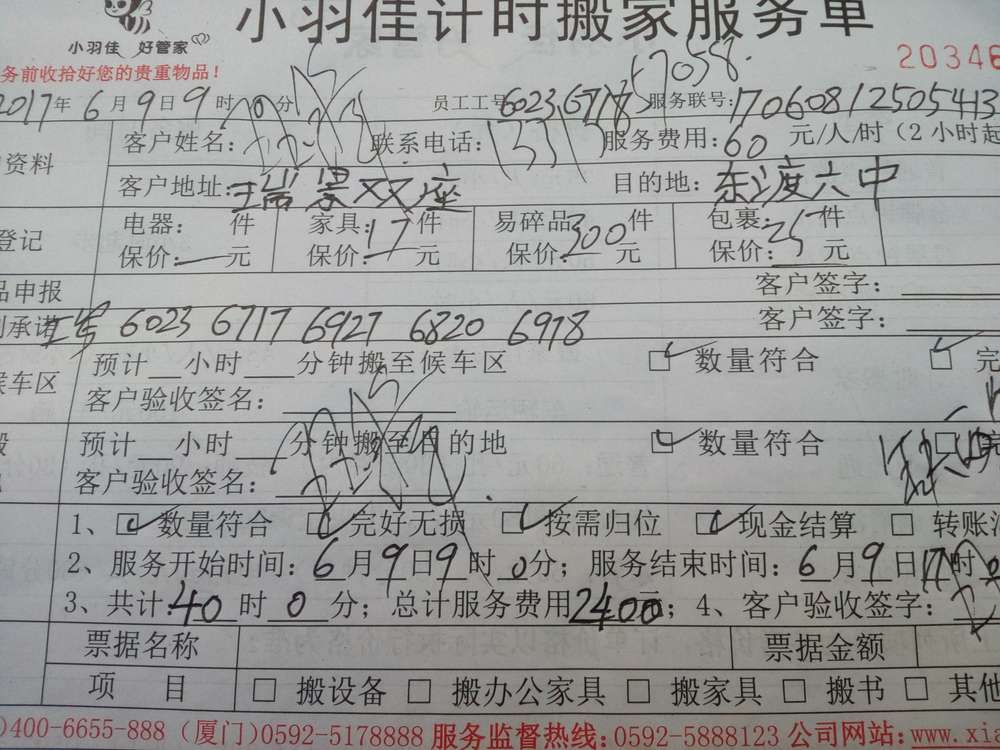 小羽佳计时搬家服务单
小羽佳 好管家
务前收拾好您的贵重物品！
20346
2017年6月9日9时0分 员工工号6023 6718 17058 服务联号：17060812505413
资料 客户姓名： 联系电话： 服务费用：60 元/人/时（2小时起
客户地址：瑞景双座 目的地：东渡六中
登记 电器： 件 家具： 件 易碎品 件 包裹： 件
保价：— 元 保价：17 元 保价：300 元 保价：25 元
品申报 客户签字：
承诺 工号 6023 6717 6927 6820 6978 客户签字：
候车区 预计 小时 分钟搬至候车区 数量符合 完
客户验收签名：
预计 小时 分钟搬至目的地 数量符合 完
客户验收签名：
1、 数量符合 完好无损 按需归位 现金结算 转账
2、服务开始时间：6月9日9时0分；服务结束时间：6月9日17时
3、共计40时0分；总计服务费用2400元；4、客户验收签字：
票据名称 票据金额
项 目 搬设备 搬办公家具 搬家具 搬书 其他
)400-6655-888（厦门)0592-5178888 服务监督热线：0592-5888123 公司网站：www.xia